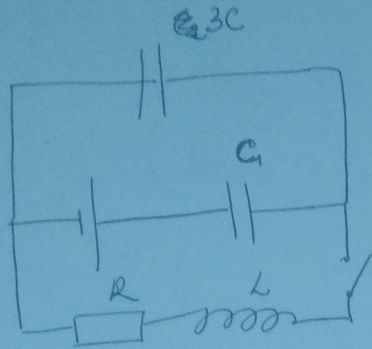 C₂ 3C
C₁
R
L